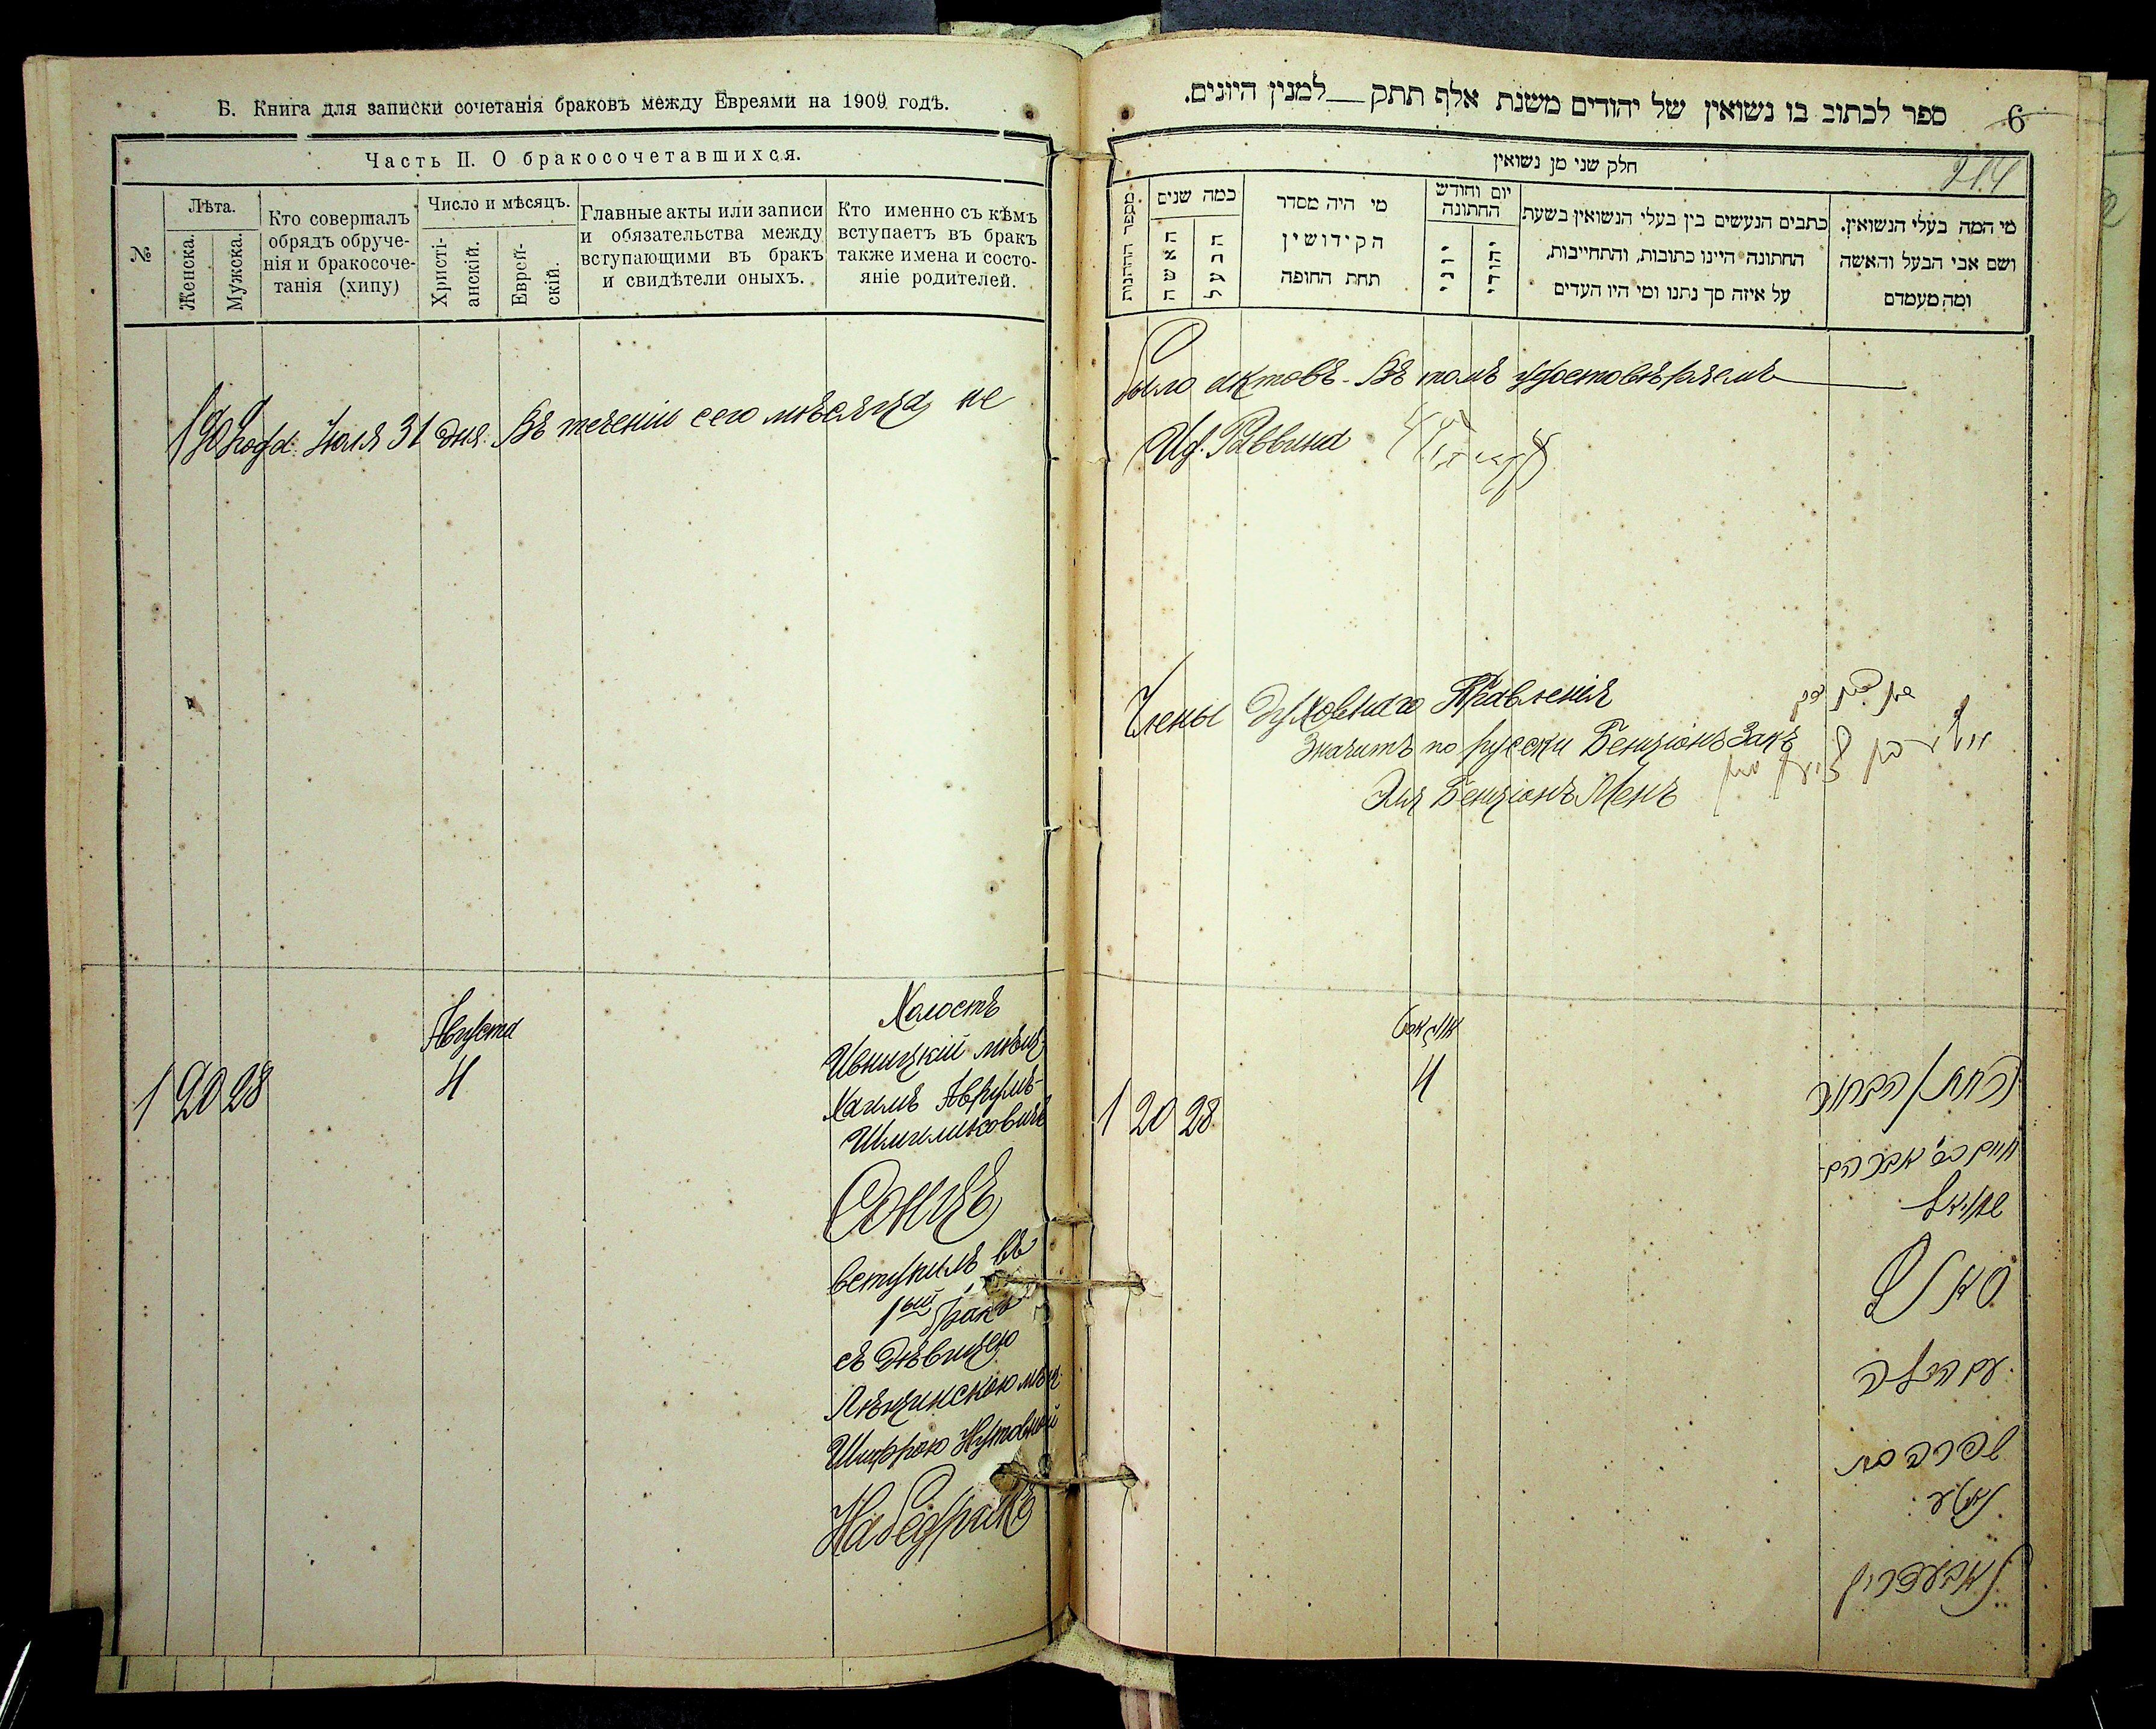 Б. Книга для записки сочетанія браковъ между Евреями на 1909 годъ.
Часть II. О бракосочетавшихся.
№
Лѣта.
Женска.
Мужска.
Кто совершалъ
обрядъ обруче-
нія и бракосоче-
танія (хипу)
Число и мѣсяцъ.
Христі-
анскій.
Еврей-
скій.
Главные акты или записи
и обязательства между
вступающими въ бракъ
и свидѣтели оныхъ.
Кто именно съ кѣмъ
вступаетъ въ бракъ
также имена и состо-
яніе родителей.
1909 года Іюля 31 дня. Въ теченіи сего мѣсяца не
Августа
1 20 28
4
Холостъ
Ивницкій мѣщ.
Хаимъ Аврумъ-
Шмилиховичъ
вступилъ въ
1ый бракъ
съ дѣвицею
Шифрою
ספר לכתוב בו נשואין של יהודים משנת אלף תתק __ למנין היונים.
6
214
חלק שני מן נשואין
מספר החתונות
כמה שנים
האשה
הבעל
מי היה מסדר
הקידושין
תחת החופה
יום וחודש
החתונה
יוני
יהודי
כתבים הנעשים בין בעלי הנשואין בשעת
החתונה היינו כתובות, והתחייבות,
על איזה סך נתנו ומי היו העדים
מי המה בעלי הנשואין.
ושם אבי הבעל והאשה
ומה מעמדם
было актовъ. Въ томъ удостовѣряемъ
И.д. Раввина
Члены Духовнаго Правленія
Значитъ по русски Бенціонъ Закъ
Эля Бенціонъ Менъ
1 20 28
4